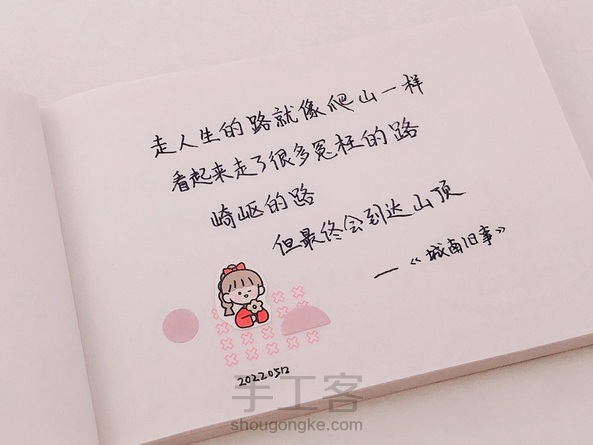 走人生的路就像爬山一样
看起来走了很多冤枉的路
崎岖的路
但最终会到达山顶
—《城南旧事》
20220512
手工客
shougongke.com